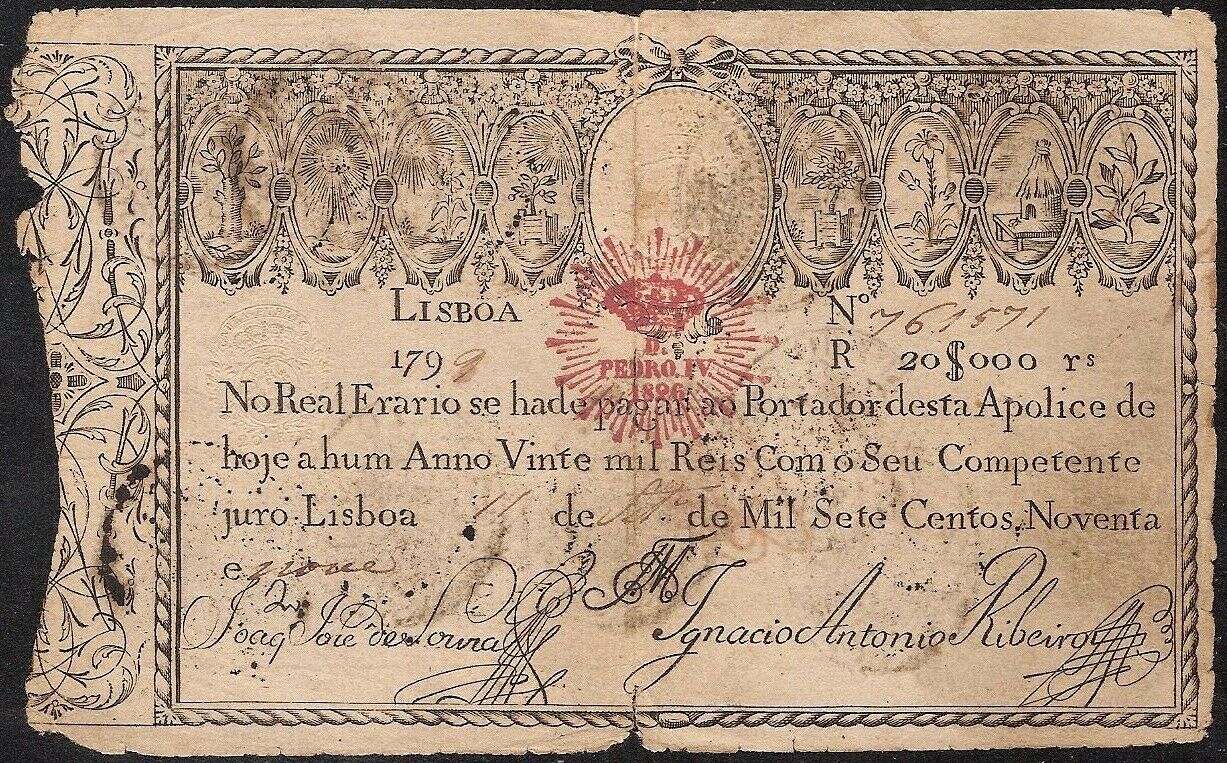 LISBOA
Nº 761571
1799
R 20$000 rs
D.
PEDRO. IV.
1826
No Real Erario se hade pagar ao Portador desta Apolice de
hoje a hum Anno Vinte mil Reis Com o Seu Competente
juro Lisboa 11 de de Mil Sete Centos, Noventa
e nove
Joaq Joze de Souza
Ignacio Antonio Ribeiro